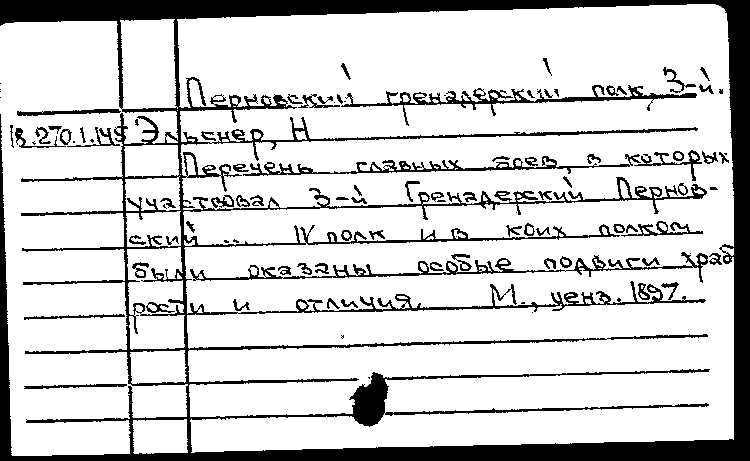 Перновский гренадерский полк, 3-й.
18.270.1.148 Эльснер, Н
Перечень главных боев, в которых
участвовал 3-й Гренадерский Пернов-
ский ... IV полк и в коих полком
были оказаны особые подвиги храб
рости и отличия. М., ценз. 1897.